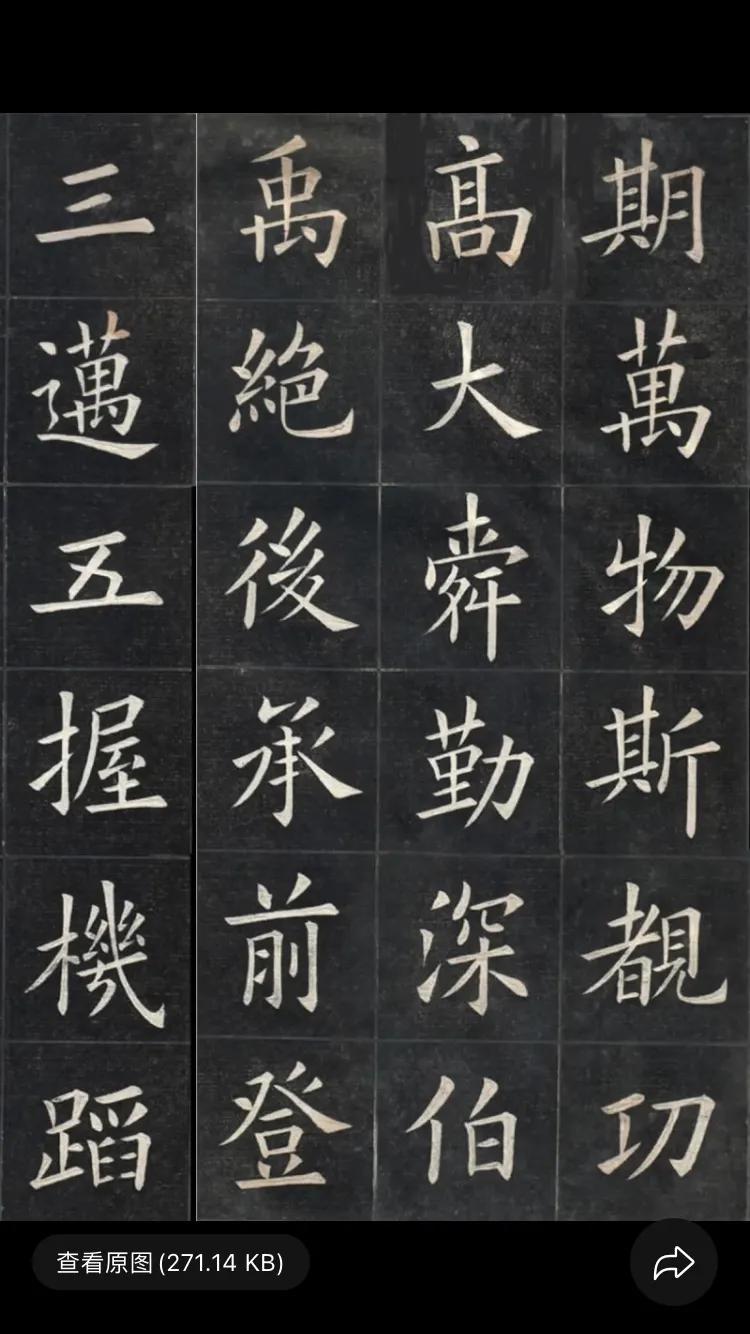 期萬物斯覩功
高大舜勤深伯
禹絶後承前登
三邁五握機蹈
查看原图(271.14 KB)